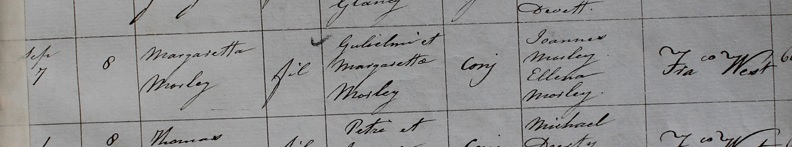 Devett.
Sep
7
8
Margaretta
Morley
fil
Gulielmi et
Margarettae
Morley
Conj
Joannes
Morley
Ellena
Morley.
Fra West
8
Thomas
fil
Petri et
Conj
Michael